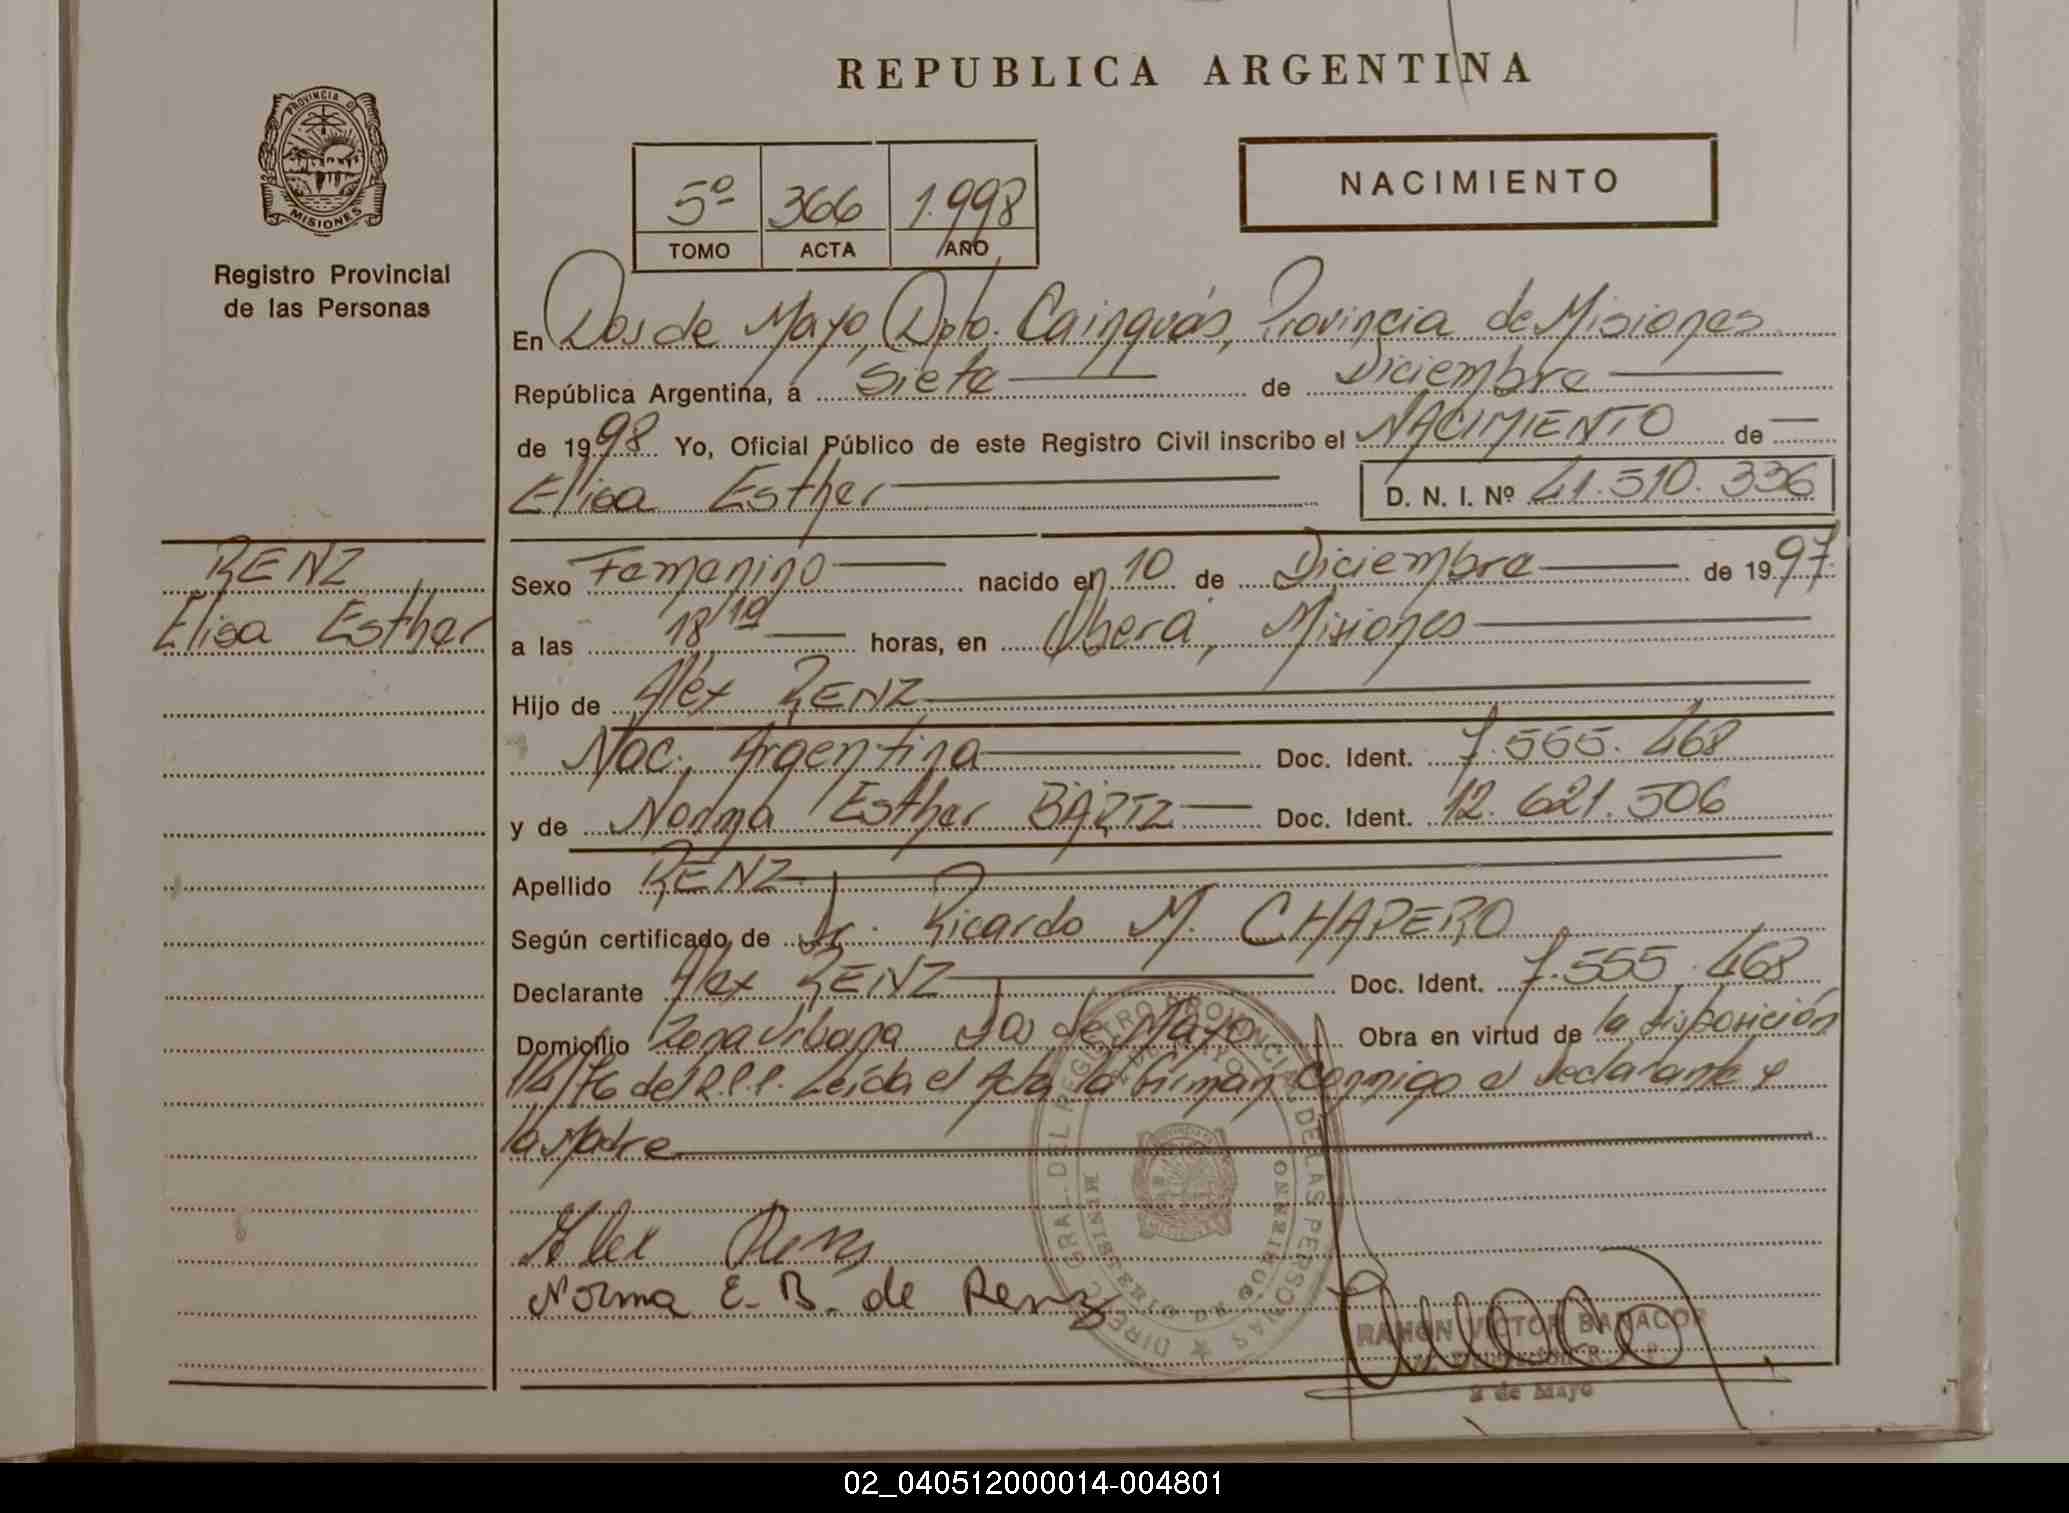 REPUBLICA ARGENTINA
PROVINCIA DE
MISIONES
Registro Provincial
de las Personas
5º 366 1.998
TOMO ACTA AÑO
NACIMIENTO
En Dos de Mayo, Dpto. Cainguás, Provincia de Misiones
República Argentina, a Siete de Diciembre
de 1998 Yo, Oficial Público de este Registro Civil inscribo el NACIMIENTO de
Elisa Esther D. N. I. Nº 41.510.336
RENZ
Elisa Esther
Sexo Femenino nacido en 10 de Diciembre de 1997
a las 18 10 horas, en Oberá, Misiones
Hijo de Alex RENZ
Nac. Argentina Doc. Ident. 7.555.468
y de Norma Esther Doc. Ident. 12.621.506
Apellido RENZ
Según certificado de Dr. Ricardo M. CHAPERO
Declarante Alex RENZ Doc. Ident. 7.555.468
Domicilio Zona Urbana Dos de Mayo Obra en virtud de la disposición
114/76 del R.P.P. Leída el Acta la firman conmigo el declarante y
la Madre
Alex Renz
Norma E. B. de Renz
DIREC. GRAL. DEL REGISTRO PROVINCIAL DE LAS PERSONAS
2 DE MAYO
RAMON VICTOR
2 de Mayo
02_040512000014-004801